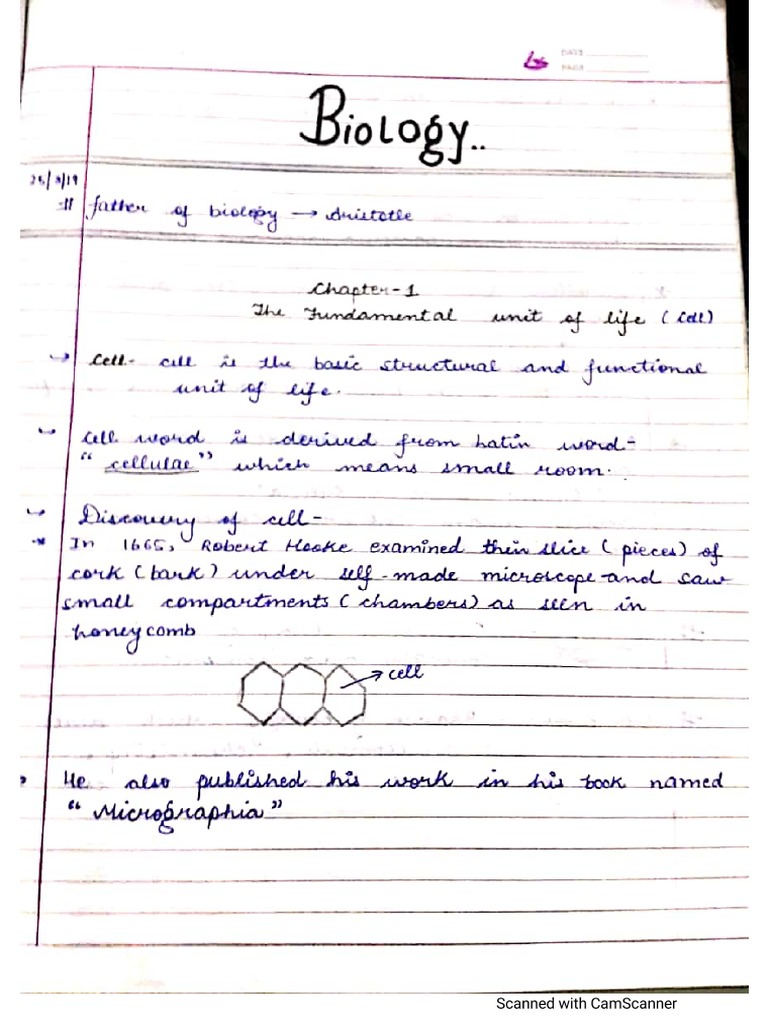 DATE
PAGE
Biology..
father of biology → Aristotle
Chapter-1
The Fundamental unit of life (Cell)
Cell- cell is the basic structural and functional
unit of life.
Cell word is derived from Latin word-
"cellulae" which means small room.
Discovery of cell-
In 1665, Robert Hooke examined thin slice (pieces) of
cork (bark) under self-made microscope and saw
small compartments (chambers) as seen in
honeycomb
→ cell
He also published his work in his book named
"Micrographia"
Scanned with CamScanner